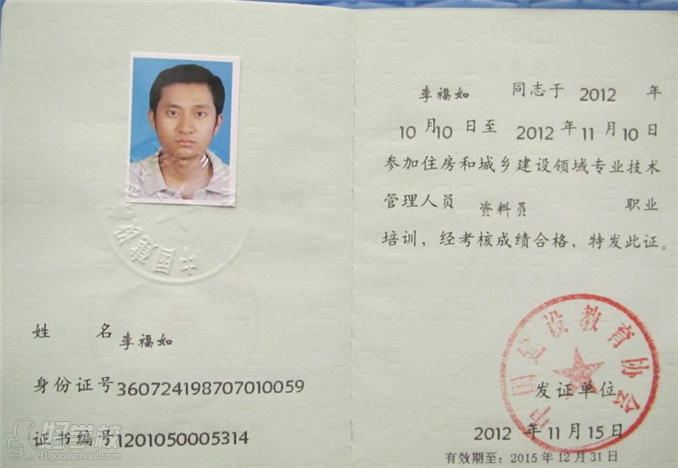 姓 名 李福如
身份证号 360724198707010059
证书编号 1201050005314
好学校
91goodschool.com
李福如 同志于 2012 年
10 月 10 日 至 2012 年 11 月 10 日
参加住房和城乡建设领域专业技术
管理人员 资料员 职业
培训，经考核成绩合格，特发此证。
中国建设教育协会
发证单位
2012 年 11 月 15 日
有效期至：2015年12月31日